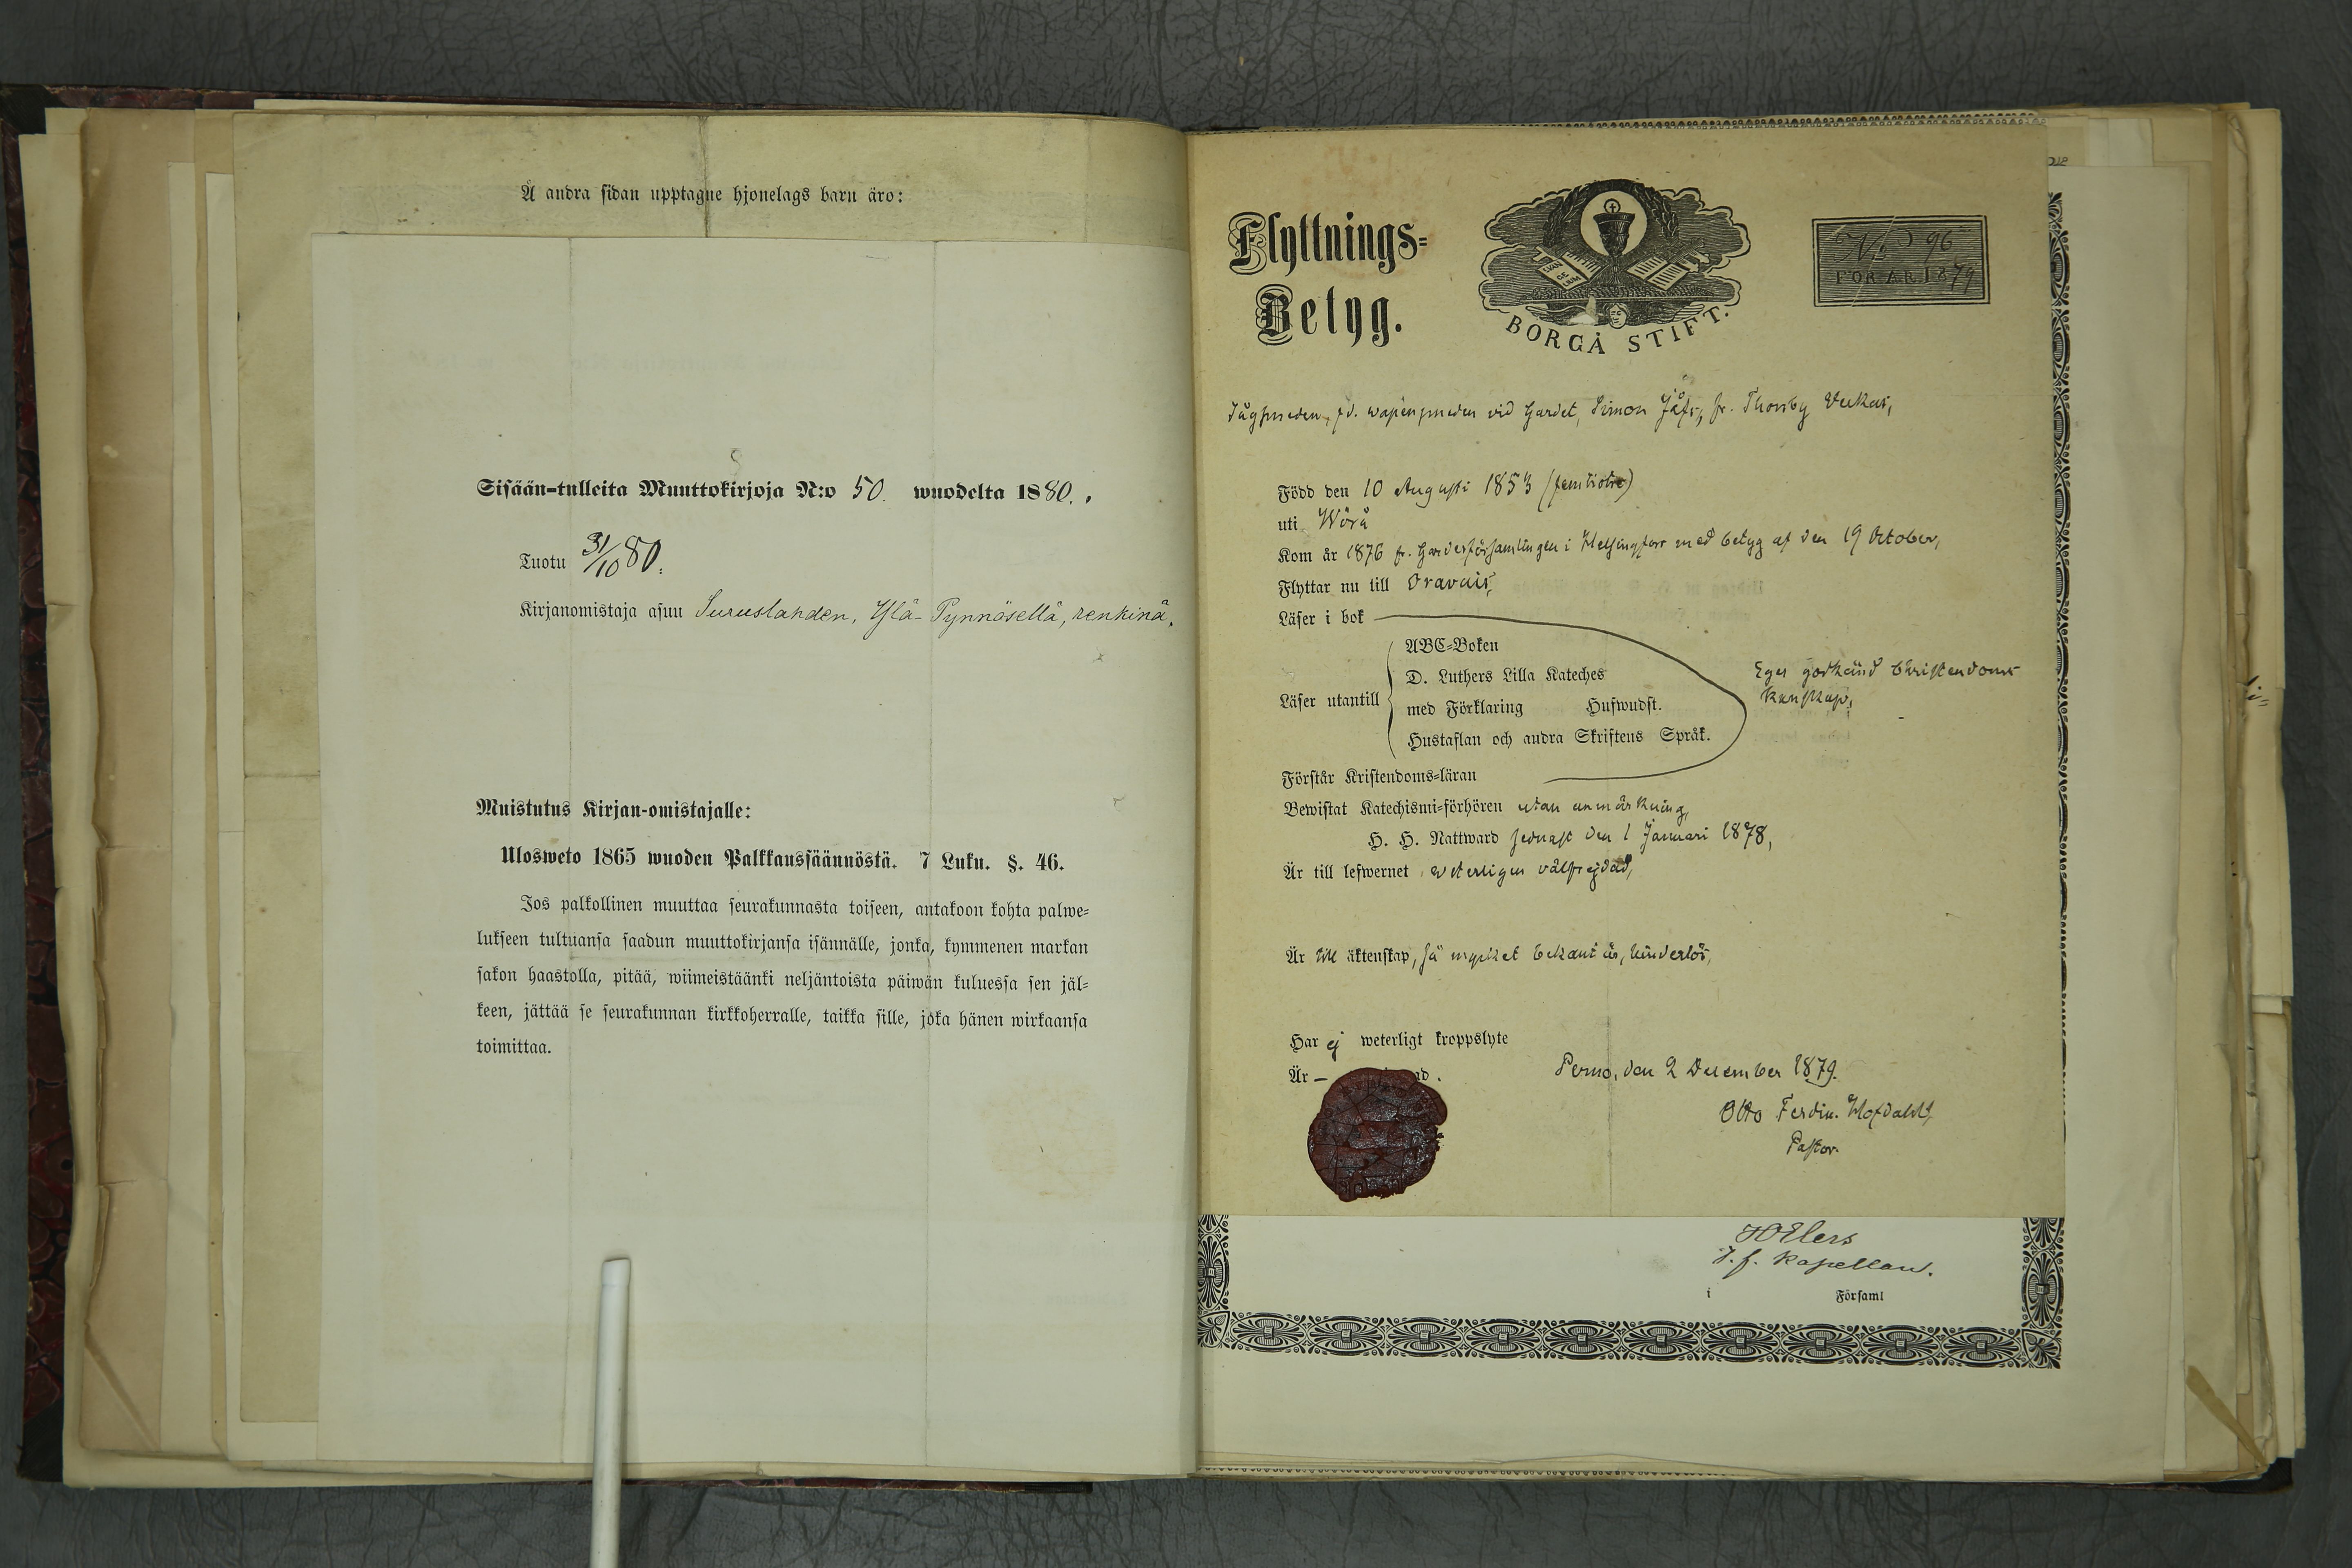 Å andra sidan upptagne hjonelags barn äro:
Sisään-tulleita Muuttokirjoja N:o 50. wuodelta 1880.
Tuotu 31/10 80.
Kirjanomistaja asuu Suruslahden, Ylä-Pynnösellä, renkinä.
Muistutus Kirjan-omistajalle:
Ulosweto 1865 wuoden Palkkaussäännöstä. 7 Luku. §. 46.
Jos palkollinen muuttaa seurakunnasta toiseen, antakoon kohta palwe-
lukseen tultuansa saadun muuttokirjansa isännälle, jonka, kymmenen markan
sakon haastolla, pitää, wiimeistäänki neljäntoista päiwän kuluessa sen jäl-
keen, jättää se seurakunnan kirkkoherralle, taikka sille, joka hänen wirkaansa
toimittaa.
Flyttnings-
Betyg.
EVAN
GE
LIUM
BORGÅ STIFT.
No 96
FÖR ÅR 1879
wapensmeden vid Gardet, Simon fr. Thorsby
Född den 10 Augusti 1853 (femtiotre)
uti Wörå
Kom år 1876 fr. Gardesförsamlingen i Helsingfors med betyg af den 19 October,
Flyttar nu till Oravais,
Läser i bok
Läser utantill
ABC-Boken
D. Luthers Lilla Kateches
med Förklaring Hufwudst.
Hustaflan och andra Skriftens Språk.
Eger godkänd Christendoms
kunskap,
Förstår Kristendoms-läran
Bewistat Katechismi-förhören utan anmärkning,
H. H. Nattward sednast den 1 Januari 1878,
Är till lefwernet veterligen välfrejdad,
Är till äktenskap, så mycket bekant är, hinderlös,
Har ej weterligt kroppslyte
Är – ad.
Perno, den 2 December 1879.
Otto Ferdin.
Pastor.
Elers
T. f. Kapellan.
i Församl